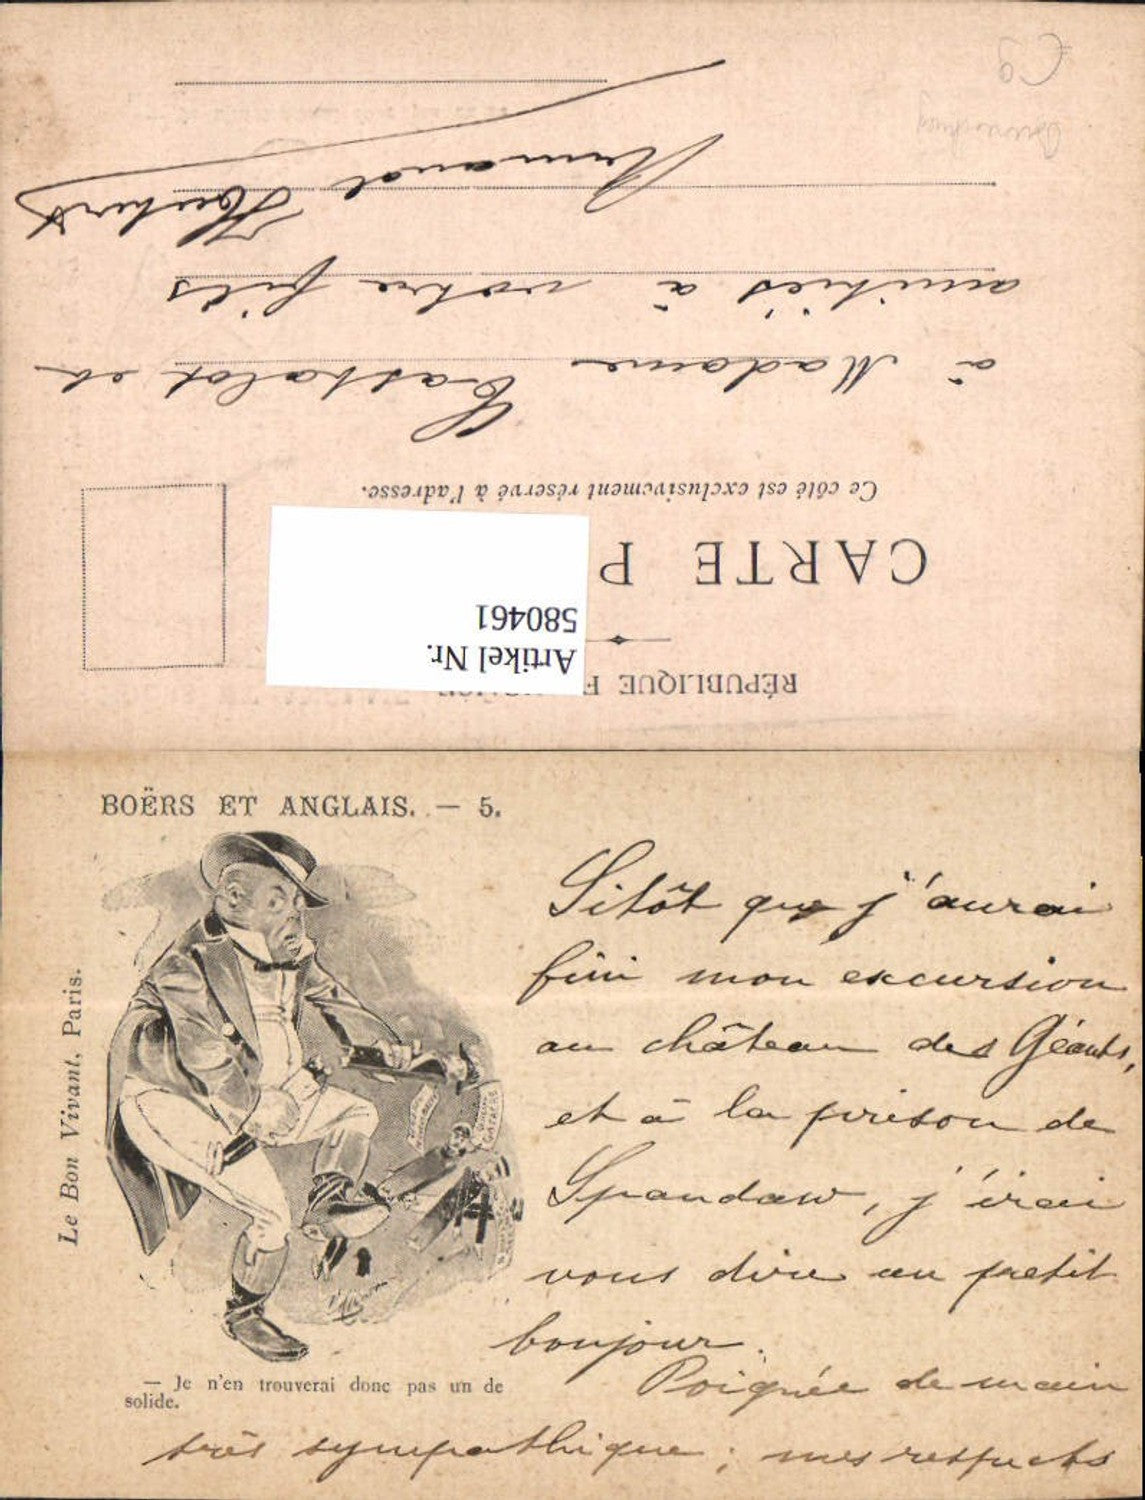 BOËRS ET ANGLAIS. — 5.
Le Bon Vivant, Paris.
— Je n'en trouverai donc pas un de
solide.
Sitôt que j'aurai
fini mon excursion
au château des Géants,
et à la prison de
Spandaw, j'irai
vous dire un petit
bonjour.
Poignée de main
très sympathique ; mes respects
RÉPUBLIQUE F
CARTE P
Ce côté est exclusivement réservé à l'adresse.
Artikel Nr.
580461
à Madame et
amitiés à votre fils
Armand Houbert
C9